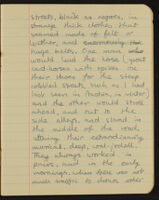 streets, black as negroes, in
strange thick clothes that
seemed made of felt or
leather, and
huge belts. One man
would lead the horse, your
cart-horses with spikes on
their shoes for the steep
cobbled streets, such as I had
only seen in Madeira, in winter,
and the other would stroll
ahead, and out to the
side alleys, and stand in
the middle of the road
uttering their extraordinary
musical, deep, coal-yodell.
They always worked in
pairs, and in the early
mornings, when there was not
much traffic to drown other